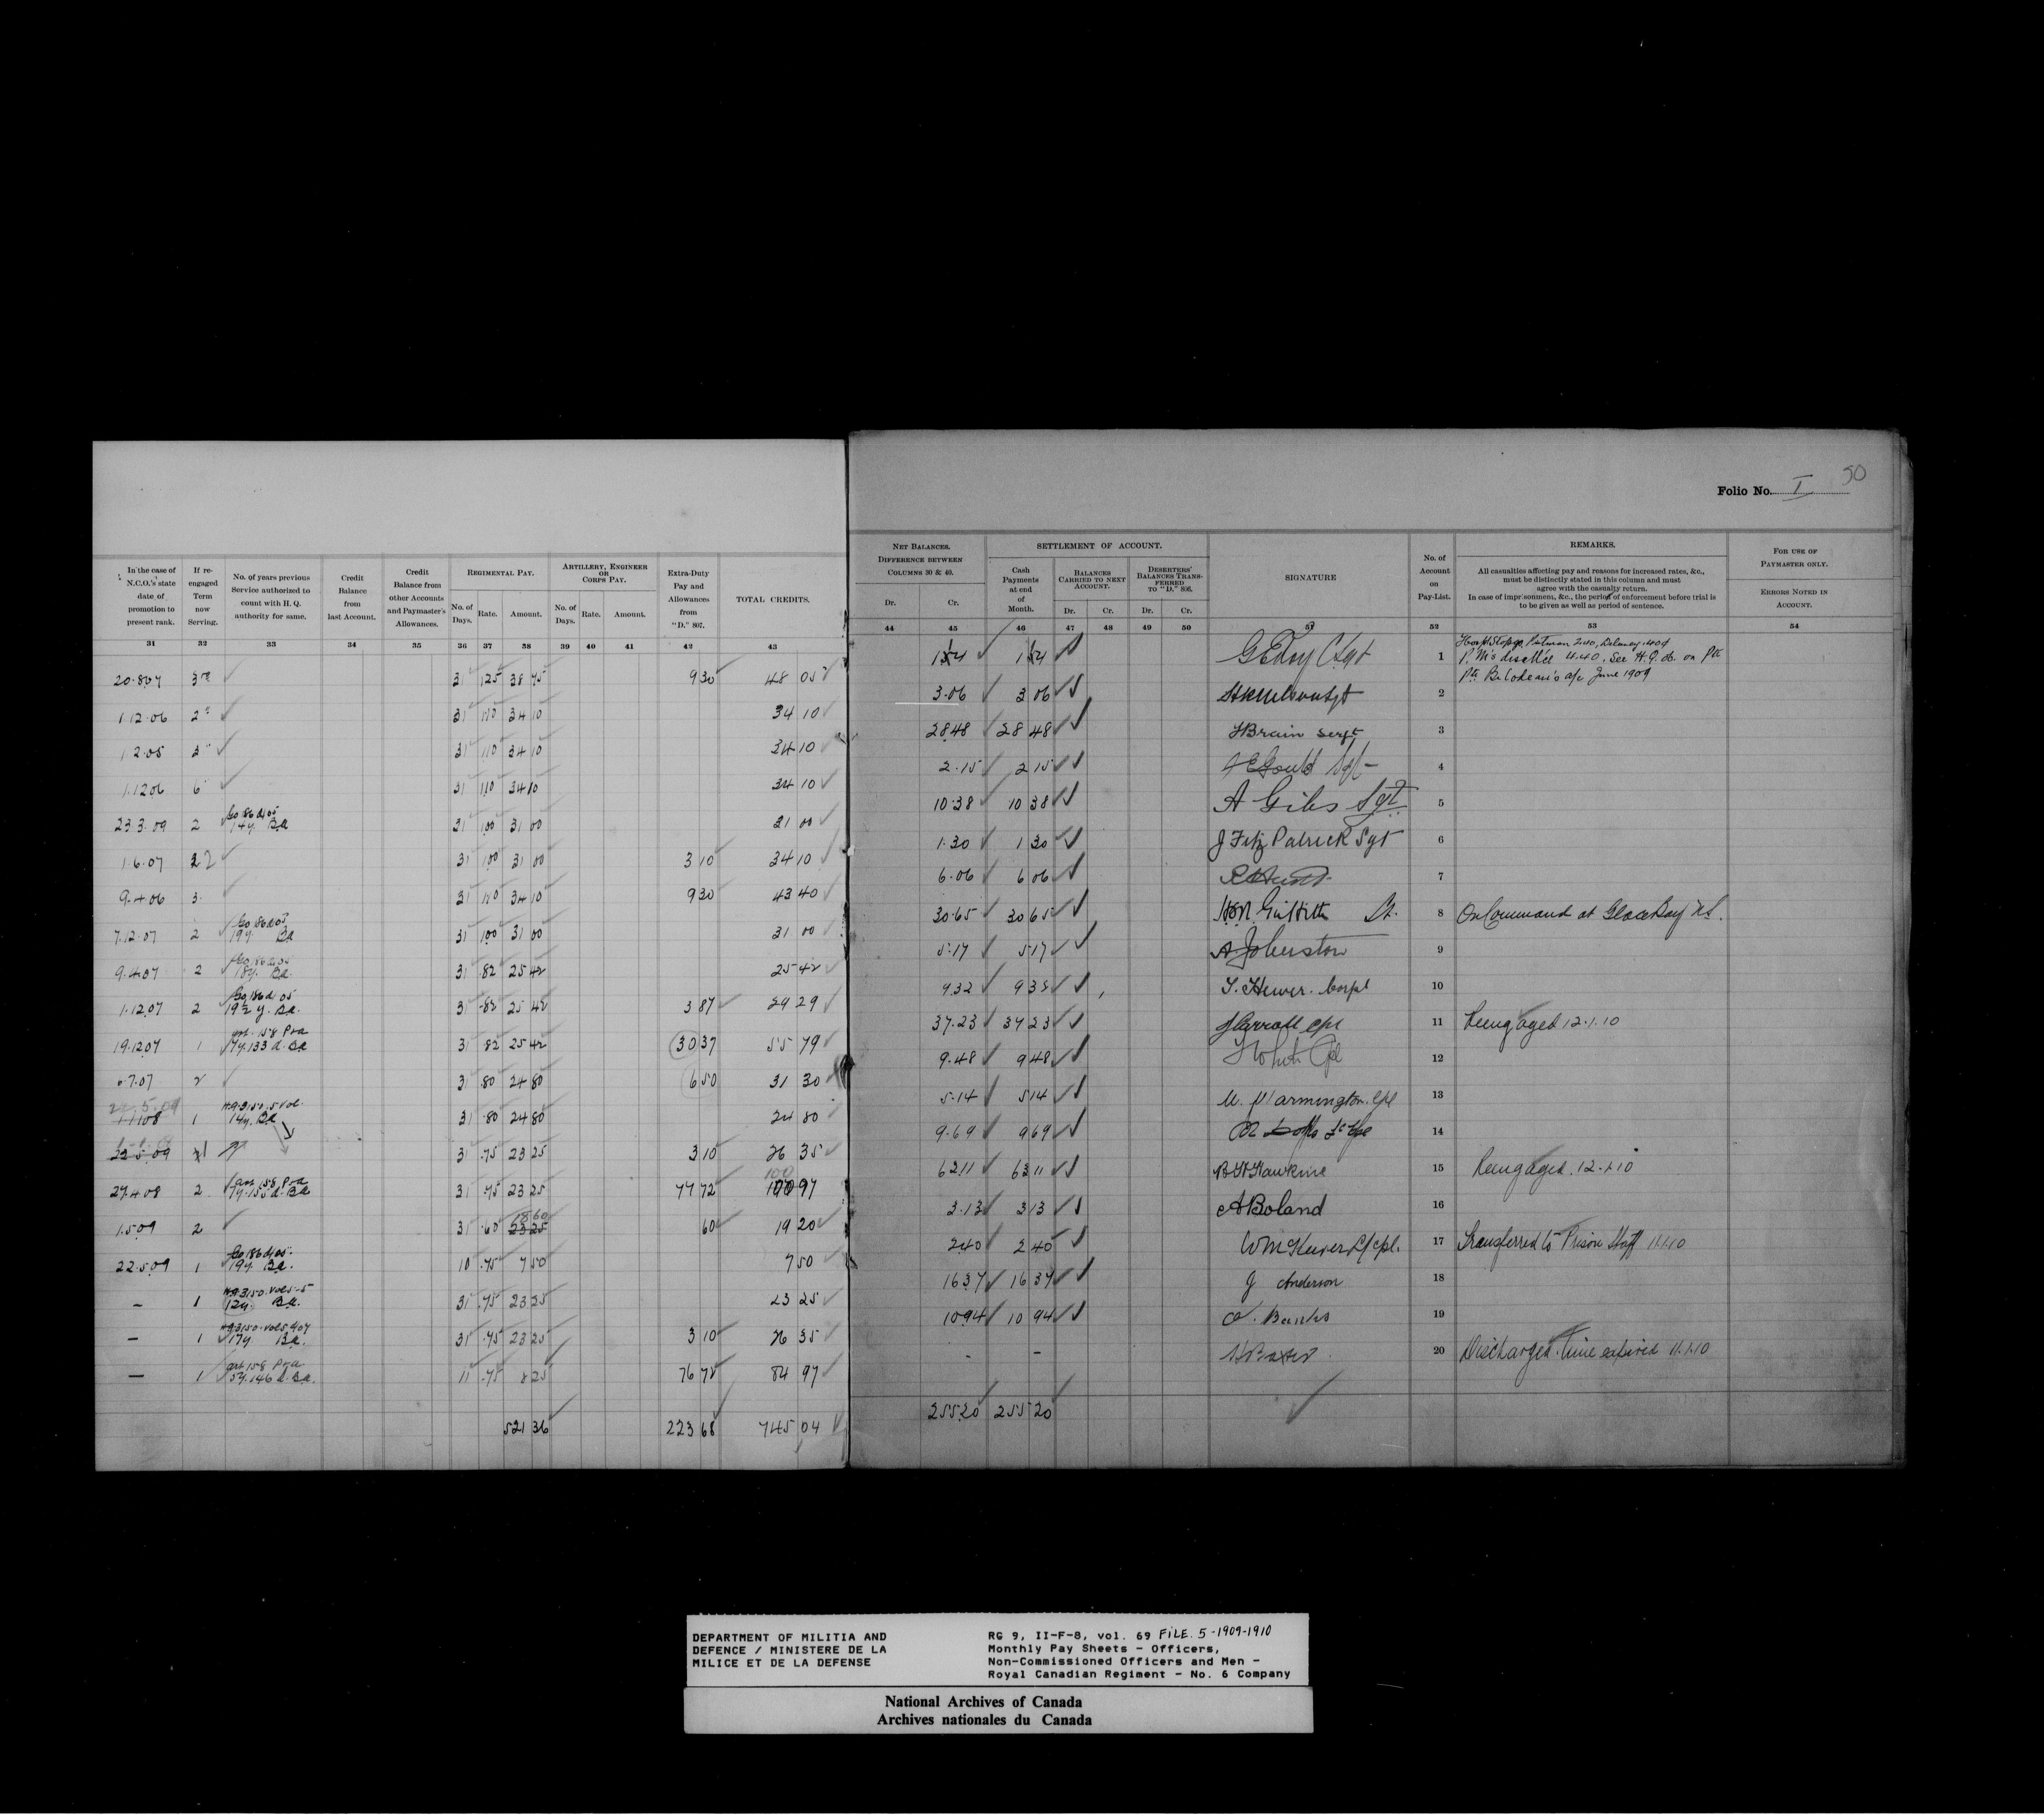 50
Folio No. I
In the case of N.C.O.'s state date of promotion to present rank.
If re-engaged Term now Serving.
No. of years previous Service authorized to count with H. Q. authority for same.
Credit Balance from last Account.
Credit Balance from other Accounts and Paymaster's Allowances.
REGIMENTAL PAY.
No. of Days.
Rate.
Amount.
ARTILLERY, ENGINEER OR CORPS PAY.
No. of Days.
Rate.
Amount.
Extra-Duty Pay and Allowances from "D." 807.
TOTAL CREDITS.
NET BALANCES.
DIFFERENCE BETWEEN COLUMNS 30 & 40.
Dr.
Cr.
SETTLEMENT OF ACCOUNT.
Cash Payments at end of Month.
BALANCES CARRIED TO NEXT ACCOUNT.
Dr.
Cr.
DESERTERS' BALANCES TRANSFERRED TO "D." 806.
Dr.
Cr.
SIGNATURE
No. of Account on Pay-List.
REMARKS.
All casualties affecting pay and reasons for increased rates, &c., must be distinctly stated in this column and must agree with the casualty return.
In case of imprisonment, &c., the period of enforcement before trial is to be given as well as period of sentence.
FOR USE OF PAYMASTER ONLY.
ERRORS NOTED IN ACCOUNT.
31 32 33 34 35 36 37 38 39 40 41 42 43 44 45 46 47 48 49 50 51 52 53 54
20.8.07 3 31 1.25 38 75 9 30 48 05 1
See H.Q. on Pte
June 1909
1.12.06 2 31 1.10 34 10 34 10 3.06 3 06 Sgt 2
1.2.05 3 31 1.10 34 10 34 10 28.48 28 48 Brain Sergt 3
1.12.06 6 31 1.10 34 10 34 10 2.15 2 15 Gould Sgt 4
23.3.09 2 14y. 31 1.00 31 00 31 00 10.38 10 38 A Giles Sgt 5
1.6.07 2 31 1.00 31 00 3 10 34 10 1.30 1 30 J FitzPatrick Sgt 6
9.4.06 3 31 1.10 34 10 9 30 43 40 6.06 6 06 7
7.12.07 2 19y. 31 1.00 31 00 31 00 30.65 30 65 Griffith 8 On Command at Glace Bay N.S.
9.4.07 2 18y. 31 .82 25 42 25 42 5.17 5 17 A Johnston 9
1.12.07 2 19½ y. 31 .82 25 42 3 87 29 29 9.32 9 32 Corpl 10
19.12.07 1 7y. 133 d. 31 .82 25 42 30 37 55 79 37.23 37 23 J Carroll Cpl 11 Reengaged 12.1.10
7.07 2 31 .80 24 80 6 50 31 30 9.48 9 48 White Cpl 12
1 14y. 31 .80 24 80 24 80 5.14 5 14 Warmington Cpl 13
22.5.09 31 .75 23 25 3 10 26 35 9.69 9 69 14
27.4.08 2 31 .75 23 25 77 72 100 97 62.11 62 11 Hawkins 15 Reengaged 12.1.10
1.5.09 2 31 .60 18 60 60 19 20 3.13 3 13 A Boland 16
22.5.09 1 19y. 10 .75 7 50 7 50 2.40 2 40 L/Cpl. 17 Transferred to Prison Staff
— 1 12y. 31 .75 23 25 23 25 16.37 16 37 J Anderson 18
— 1 17y 31 .75 23 25 3 10 26 35 10.94 10 94 Banks 19
— 1 5y. 146 d. 11 .75 8 25 76 72 84 97 - - Baxter 20 Discharged time expired 11.1.10
521 36 223 68 745 04 255.20 255 20
DEPARTMENT OF MILITIA AND
DEFENCE / MINISTERE DE LA
MILICE ET DE LA DEFENSE
RG 9, II-F-8, vol. 69 FILE. 5-1909-1910
Monthly Pay Sheets - Officers,
Non-Commissioned Officers and Men -
Royal Canadian Regiment - No. 6 Company
National Archives of Canada
Archives nationales du Canada